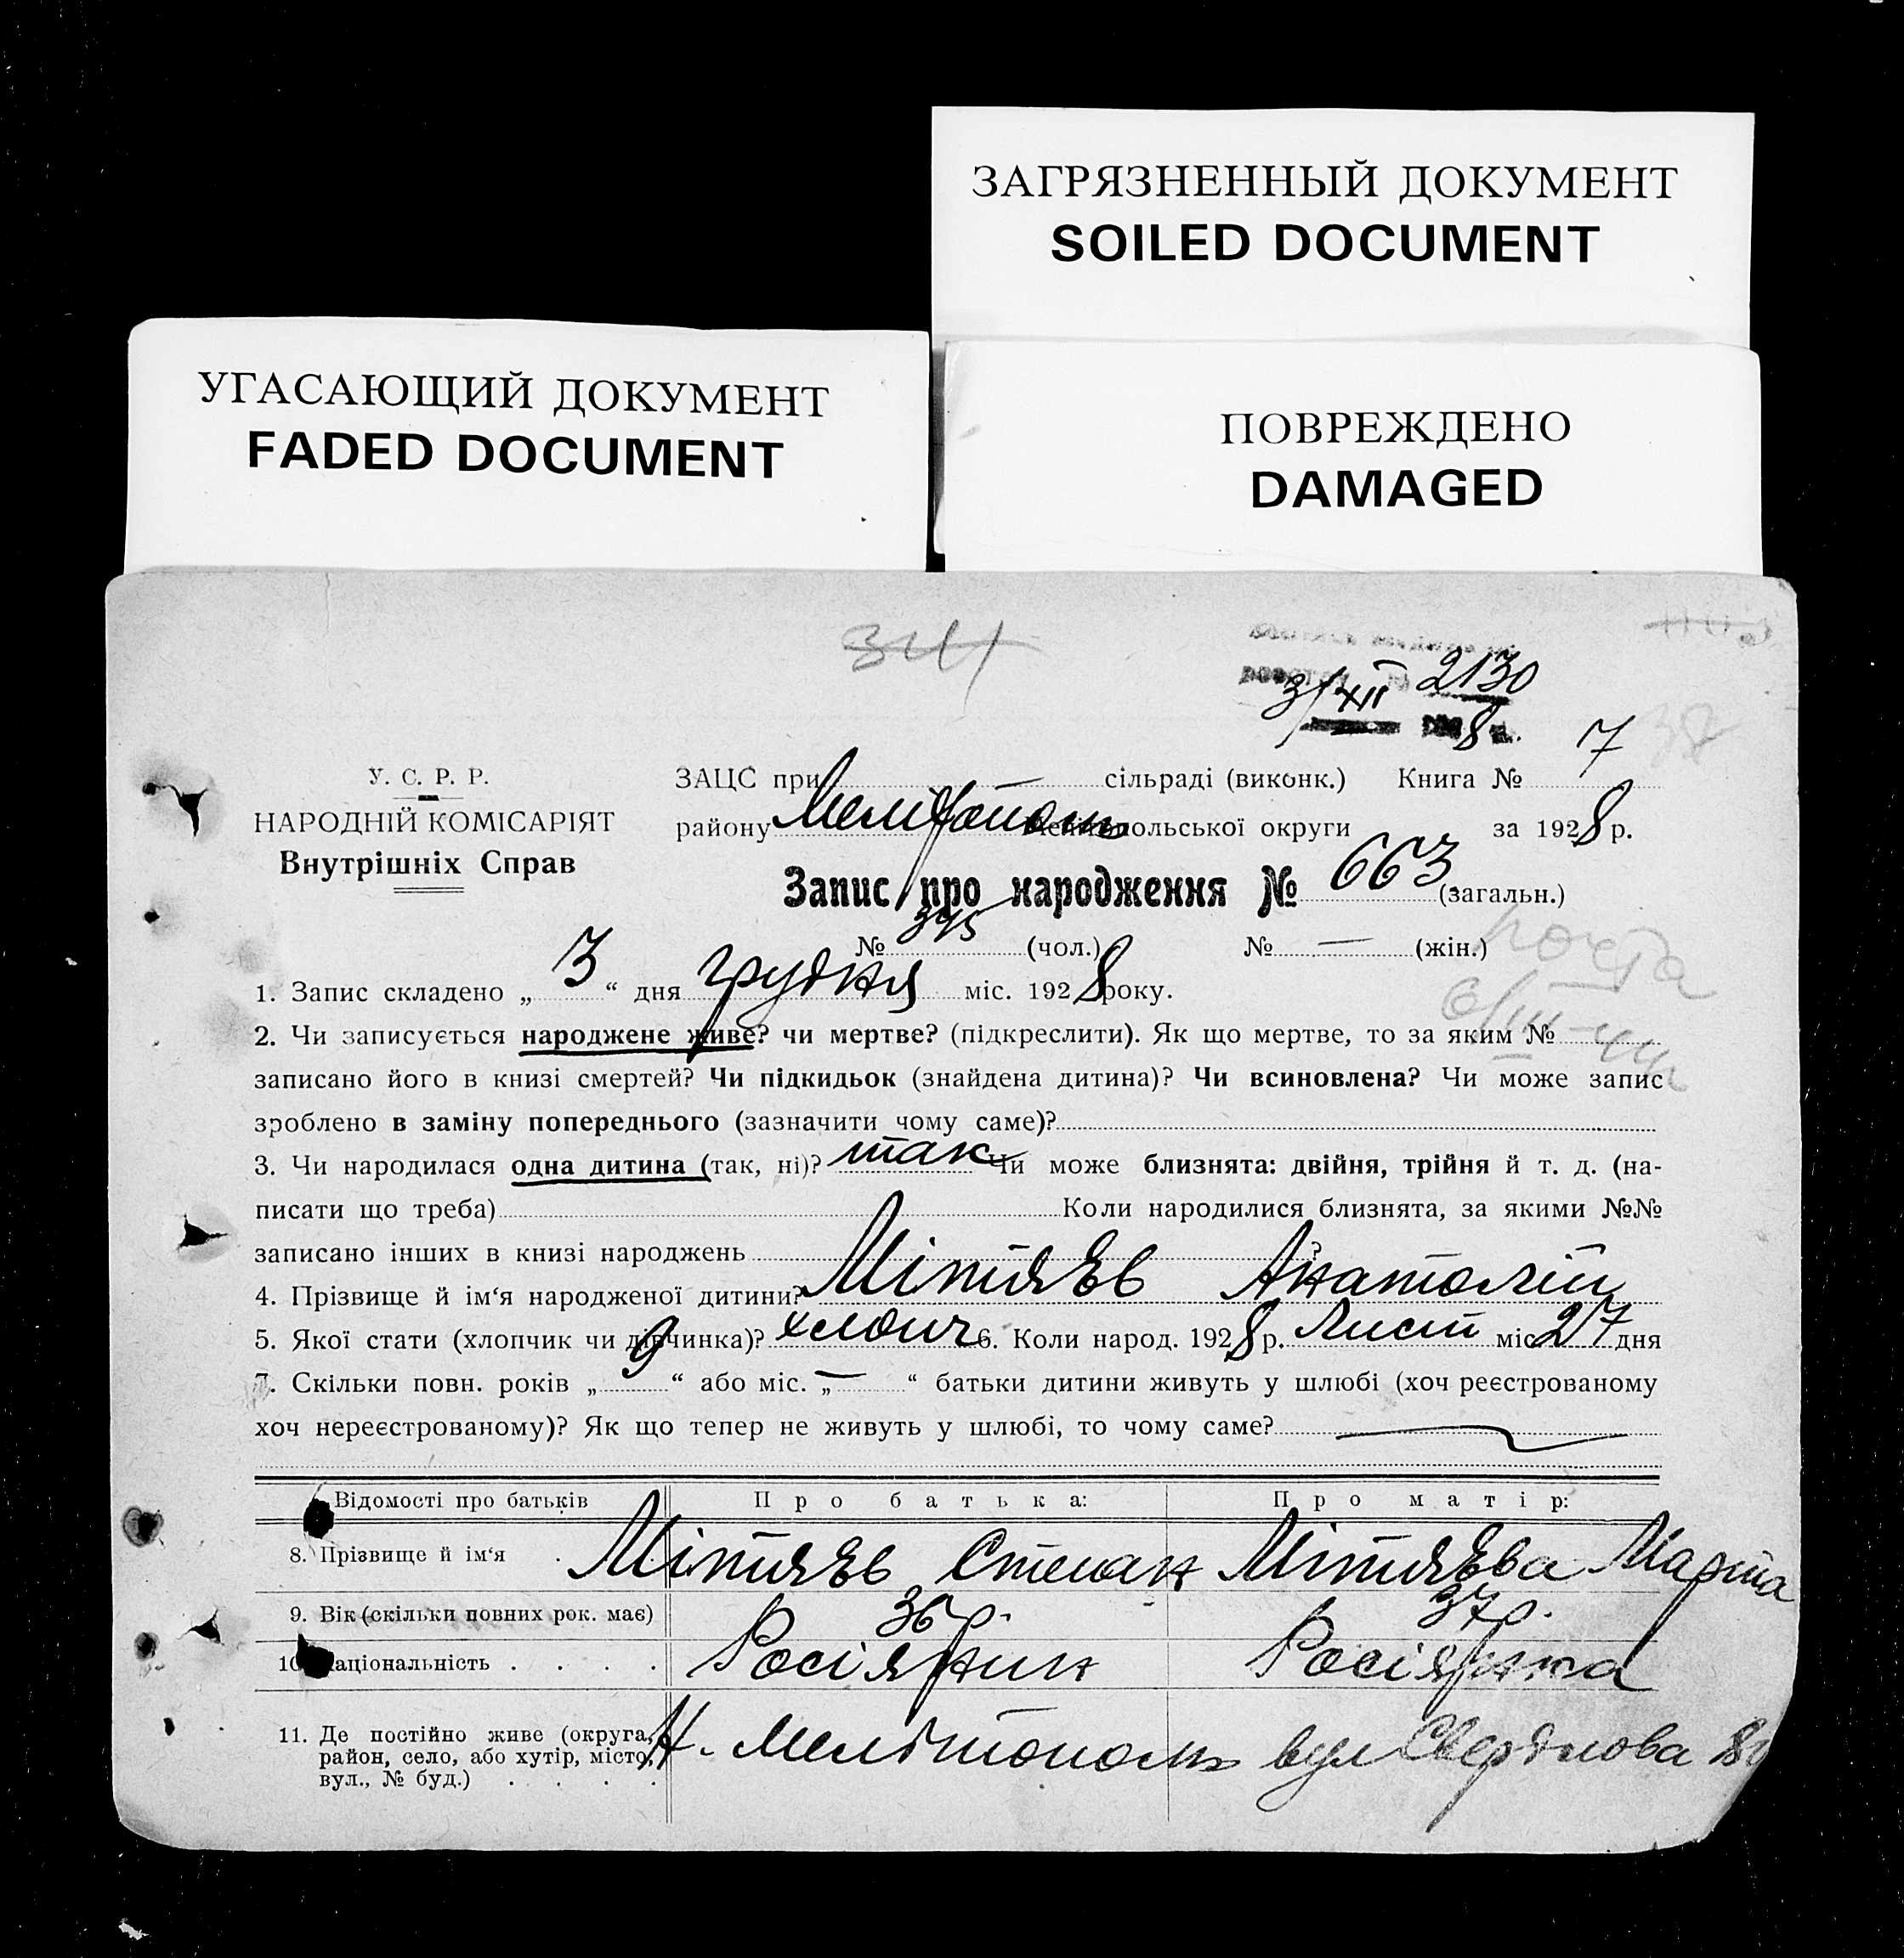 ЗАГРЯЗНЕННЫЙ ДОКУМЕНТ
SOILED DOCUMENT
УГАСАЮЩИЙ ДОКУМЕНТ
FADED DOCUMENT
ПОВРЕЖДЕНО
DAMAGED
341
2130
3/XII
8 р.
У. С. Р. Р.
НАРОДНІЙ КОМІСАРІЯТ
Внутрішніх Справ
ЗАЦС при — сільраді (виконк.) Книга № 7
району Мелітополь польської округи за 1928 р.
Запис про народження № 663 (загальн.)
№ 345 (чол.) № — (жін.)
1. Запис складено „ 3 “ дня грудня міс. 1928 року.
2. Чи записується народжене живе? чи мертве? (підкреслити). Як що мертве, то за яким №
записано його в книзі смертей? Чи підкидьок (знайдена дитина)? Чи всиновлена? Чи може запис
зроблено в заміну попереднього (зазначити чому саме)?
3. Чи народилася одна дитина (так, ні)? так Чи може близнята: двійня, трійня й т. д. (на-
писати що треба) Коли народилися близнята, за якими №№
записано інших в книзі народжень ?
4. Прізвище й ім‘я народженої дитини? Мітяєв Анатолій
5. Якої стати (хлопчик чи дівчинка)? хлопч 6. Коли народ. 1928 р. Лист міс 27 дня
7. Скільки повн. років „ 9 “ або міс. „ — “ батьки дитини живуть у шлюбі (хоч реєстрованому
хоч нереєстрованому)? Як що тепер не живуть у шлюбі, то чому саме?
Відомості про батьків Про батька: Про матір:
8. Прізвище й ім‘я Мітяєв Степан Мітяєва Марта
9. Вік (скільки повних рок. має) 36 р. 37 р.
10. Національність Росіянин Росіянка
11. Де постійно живе (округа,
район, село, або хутір, місто,
вул., № буд.)
М. Мелітополь вул Свердлова